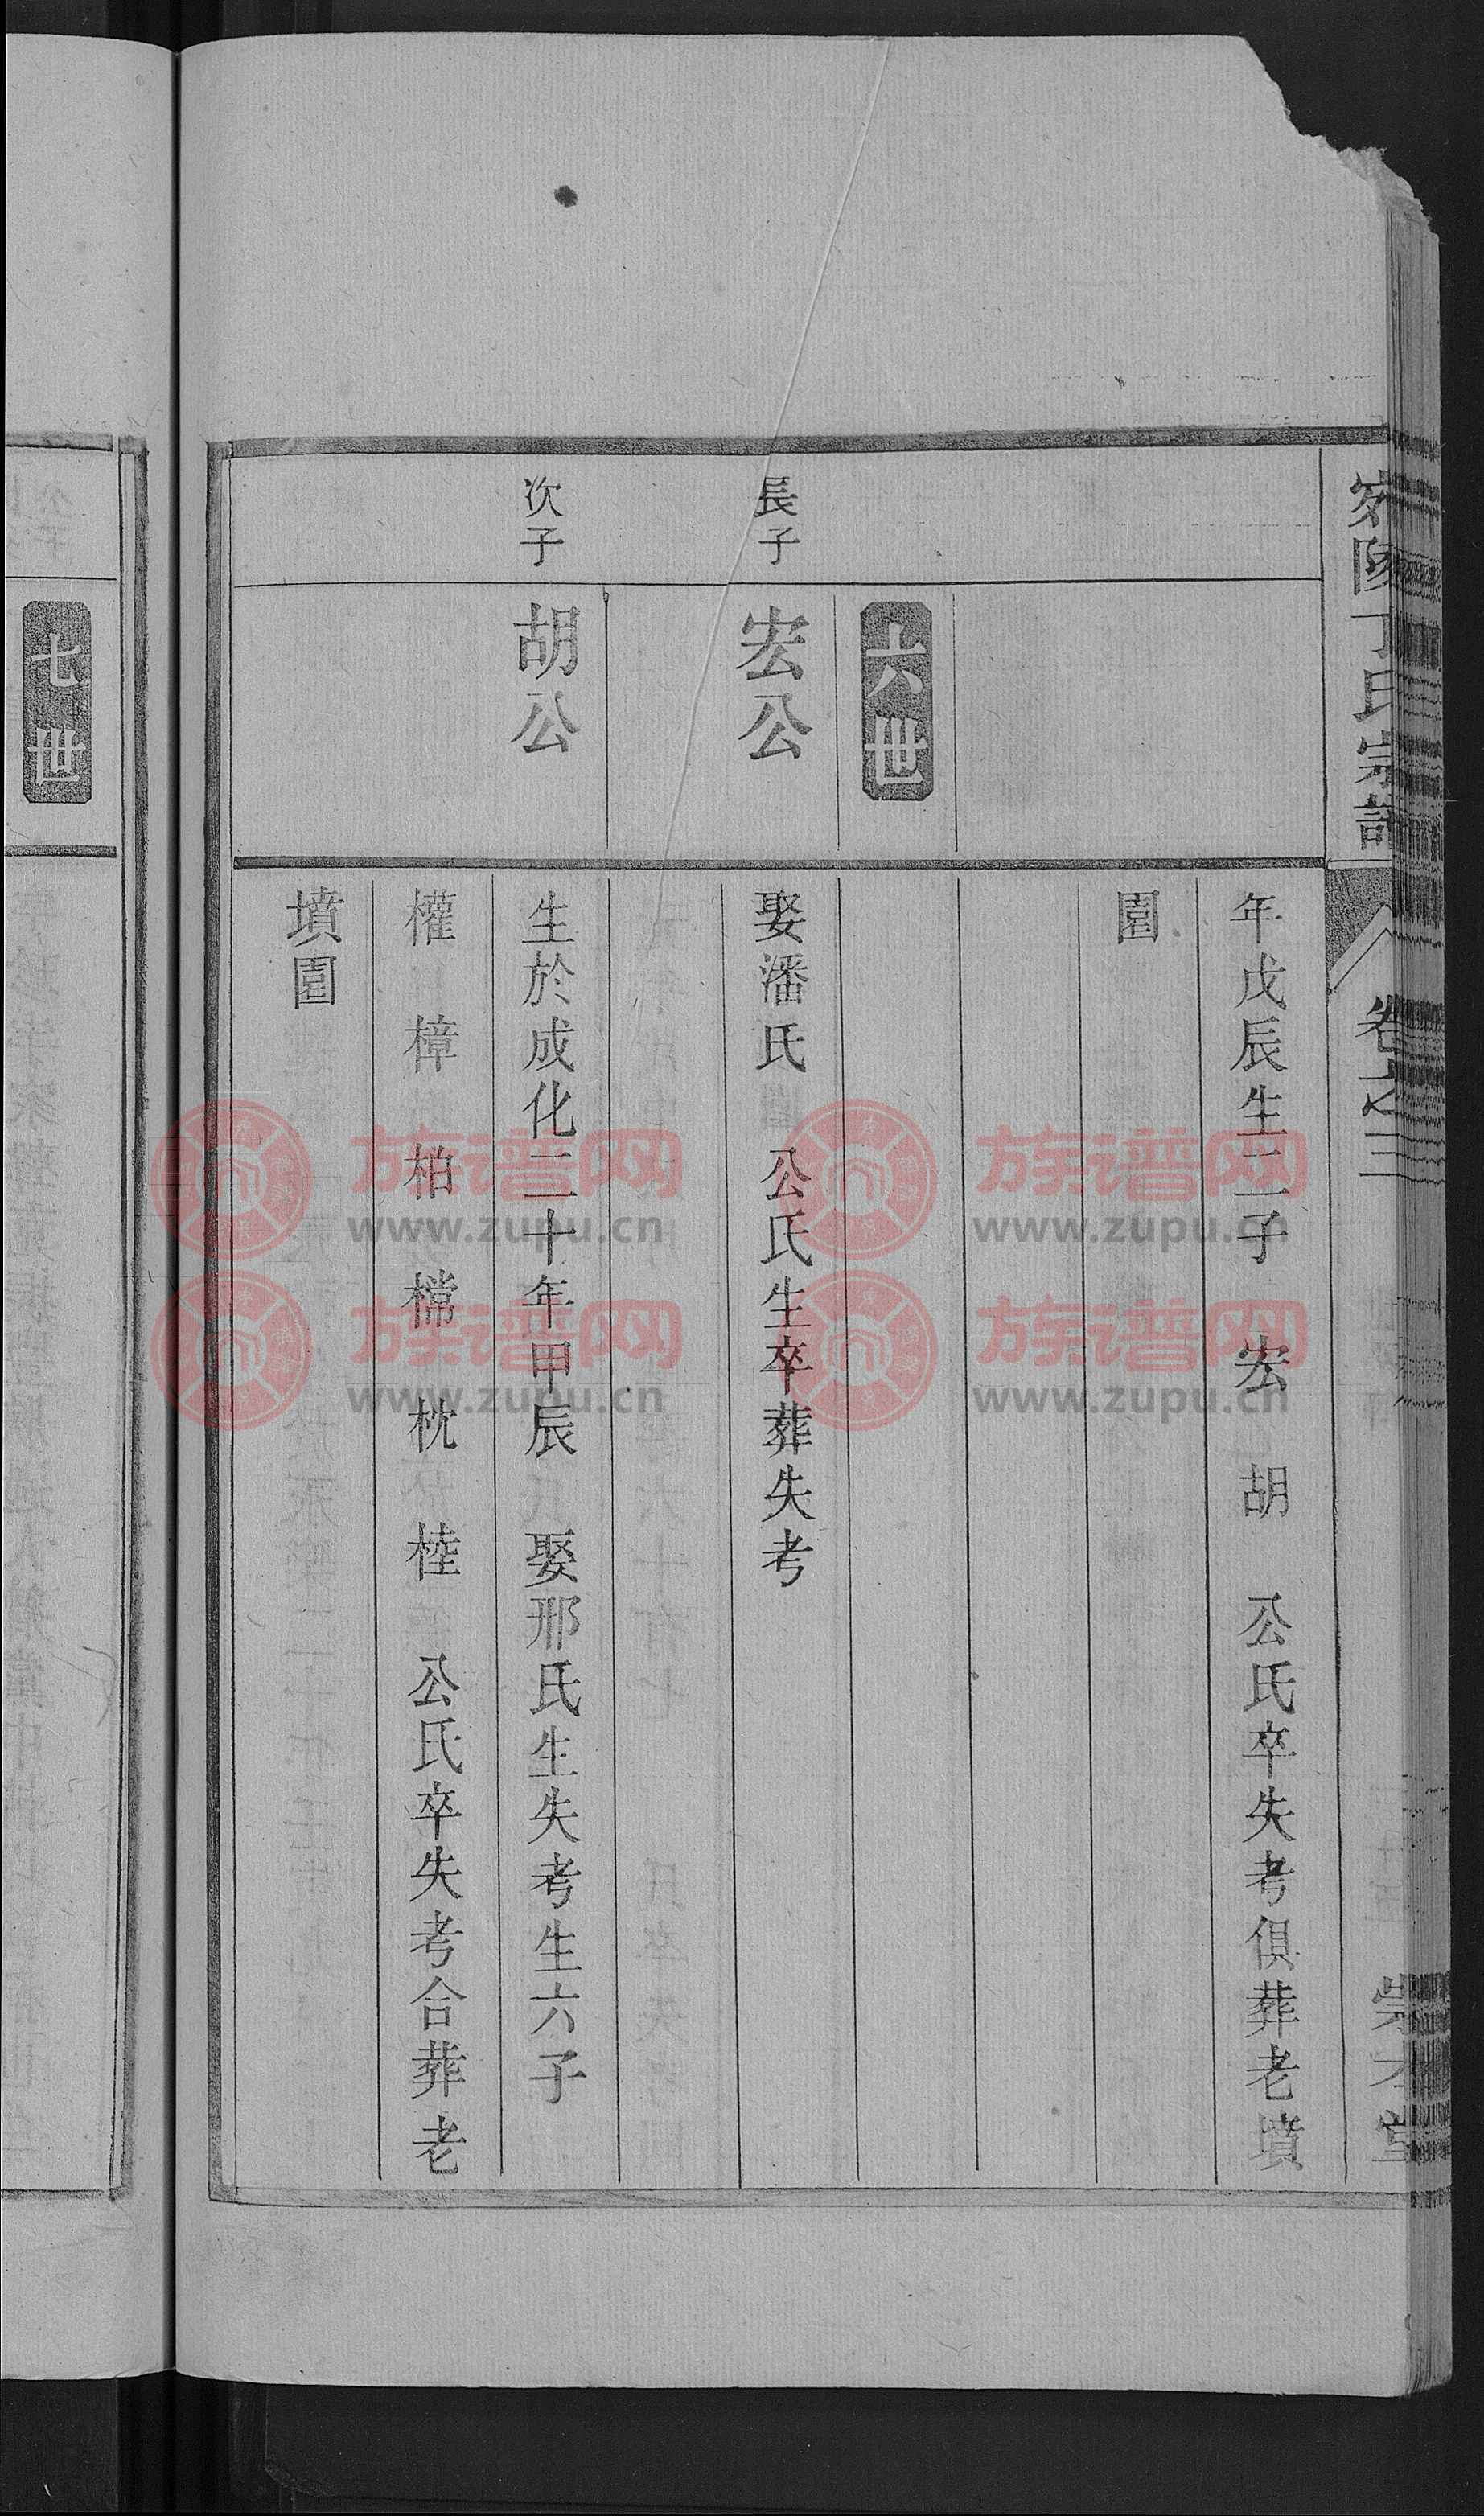 丁氏宗譜
卷之三
年戊辰生二子 宏 胡 公氏卒失考俱葬老墳
園
六世
長子
宏公
娶潘氏 公氏生卒葬失考
次子
胡公
生於成化二十年甲辰 娶邢氏生失考生六子
權 樟 柏 檰 枕 桂 公氏卒失考合葬老
墳園
七世
族谱网
www.zupu.cn
族谱网
www.zupu.cn
族谱网
www.zupu.cn
族谱网
www.zupu.cn